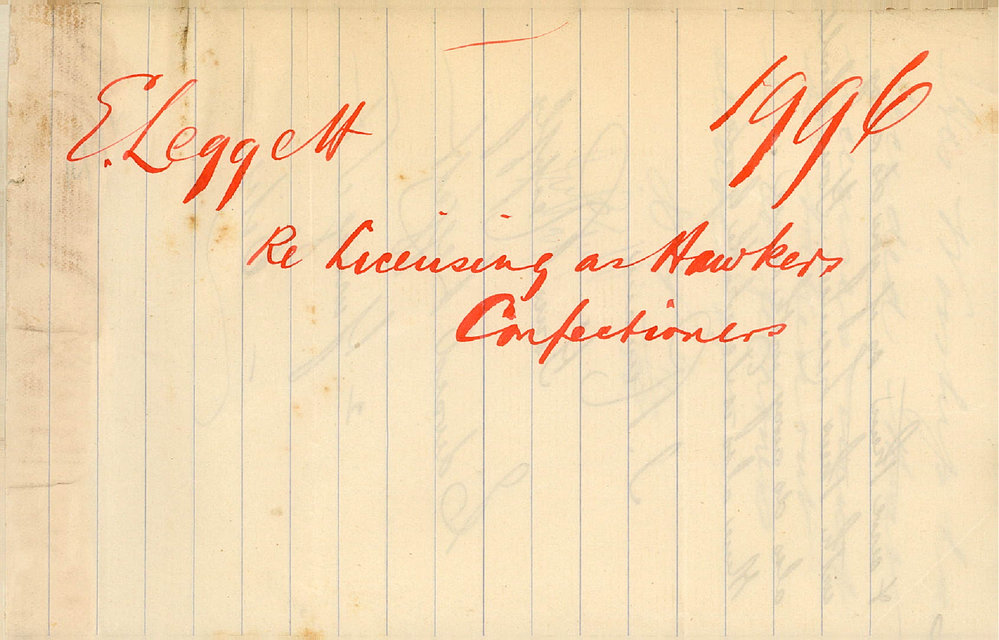 E. Leggett 1996
Re Licensing as Hawkers
Confectioners